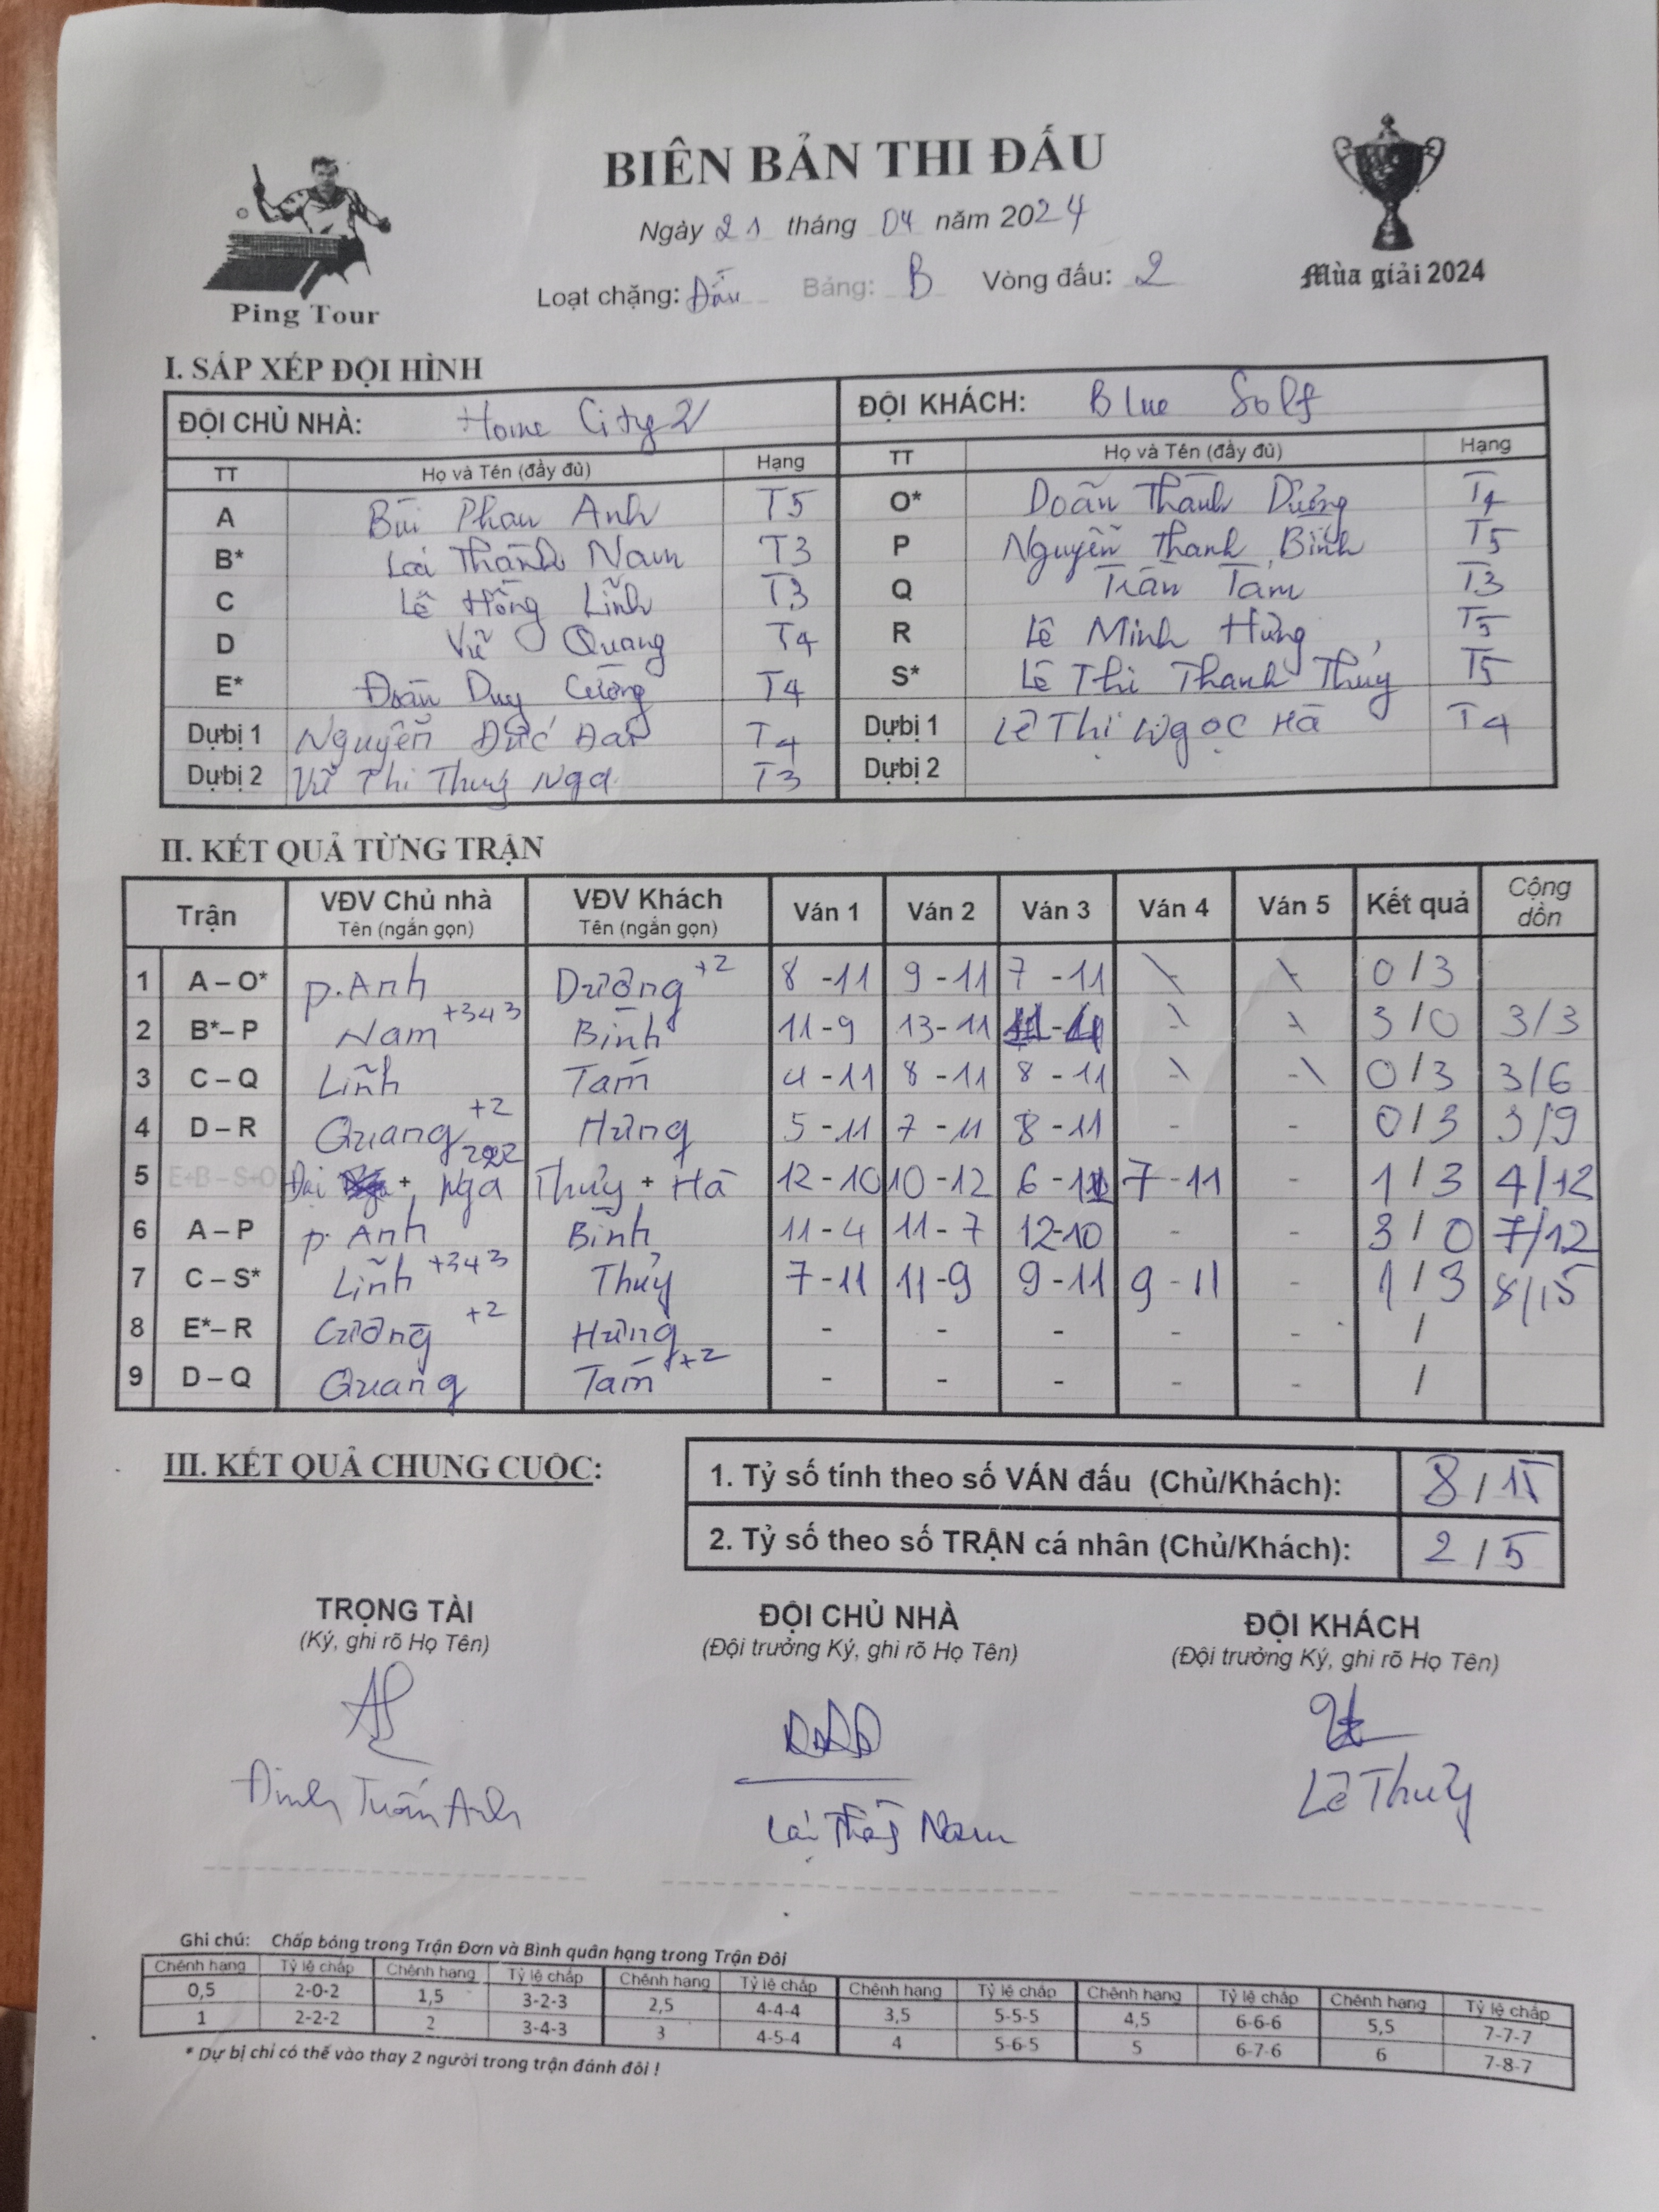 BIÊN BẢN THI ĐẤU
Ngày 21 tháng 04 năm 2024
Loạt chặng: Đấu Bảng: B Vòng đấu: 2
Ping Tour
Mùa giải 2024
I. SẮP XẾP ĐỘI HÌNH
ĐỘI CHỦ NHÀ: Home City 2 ĐỘI KHÁCH: Blue Solf
TT Họ và Tên (đầy đủ) Hạng TT Họ và Tên (đầy đủ) Hạng
A Bùi Phan Anh T5 O* Doãn Thành Dương T4
B* Lại Thành Nam T3 P Nguyễn Thanh Bình T5
C Lê Hồng Lĩnh T3 Q Trần Tám T3
D Vũ Quang T4 R Lê Minh Hưng T5
E* Đoàn Duy Cường T4 S* Lê Thị Thanh Thủy T5
Dự bị 1 Nguyễn Đức Đại T4 Dự bị 1 Lê Thị Ngọc Hà T4
Dự bị 2 Vũ Thị Thuý Nga T3 Dự bị 2
II. KẾT QUẢ TỪNG TRẬN
Trận VĐV Chủ nhà Tên (ngắn gọn) VĐV Khách Tên (ngắn gọn) Ván 1 Ván 2 Ván 3 Ván 4 Ván 5 Kết quả Cộng dồn
1 A – O* P. Anh Dương +2 8 - 11 9 - 11 7 - 11 0 / 3
2 B* – P Nam +343 Bình 11 - 9 13 - 11 - - 3 / 0 3/3
3 C – Q Lĩnh Tám 4 - 11 8 - 11 8 - 11 - - 0 / 3 3/6
4 D – R Quang +2 Hưng 5 - 11 7 - 11 8 - 11 - - 0 / 3 3/9
5 E+B – S+O Đại + Nga 222 Thủy + Hà 12 - 10 10 - 12 6 - 11 7 - 11 - 1 / 3 4/12
6 A – P P. Anh Bình 11 - 4 11 - 7 12-10 - - 3 / 0 7/12
7 C – S* Lĩnh +343 Thủy 7 - 11 11 - 9 9 - 11 9 - 11 - 1 / 3 8/15
8 E* – R Cường +2 Hưng - - - - - /
9 D – Q Quang Tám +2 - - - - - /
III. KẾT QUẢ CHUNG CUỘC:
1. Tỷ số tính theo số VÁN đấu (Chủ/Khách): 8 / 15
2. Tỷ số theo số TRẬN cá nhân (Chủ/Khách): 2 / 5
TRỌNG TÀI ĐỘI CHỦ NHÀ ĐỘI KHÁCH
(Ký, ghi rõ Họ Tên) (Đội trưởng Ký, ghi rõ Họ Tên) (Đội trưởng Ký, ghi rõ Họ Tên)
Đinh Tuấn Anh Lại Thành Nam Lê Thuỷ
Ghi chú: Chấp bóng trong Trận Đơn và Bình quân hạng trong Trận Đôi
Chênh hạng Tỷ lệ chấp Chênh hạng Tỷ lệ chấp Chênh hạng Tỷ lệ chấp Chênh hạng Tỷ lệ chấp Chênh hạng Tỷ lệ chấp Chênh hạng Tỷ lệ chấp
0,5 2-0-2 1,5 3-2-3 2,5 4-4-4 3,5 5-5-5 4,5 6-6-6 5,5 7-7-7
1 2-2-2 2 3-4-3 3 4-5-4 4 5-6-5 5 6-7-6 6 7-8-7
* Dự bị chỉ có thể vào thay 2 người trong trận đánh đôi !